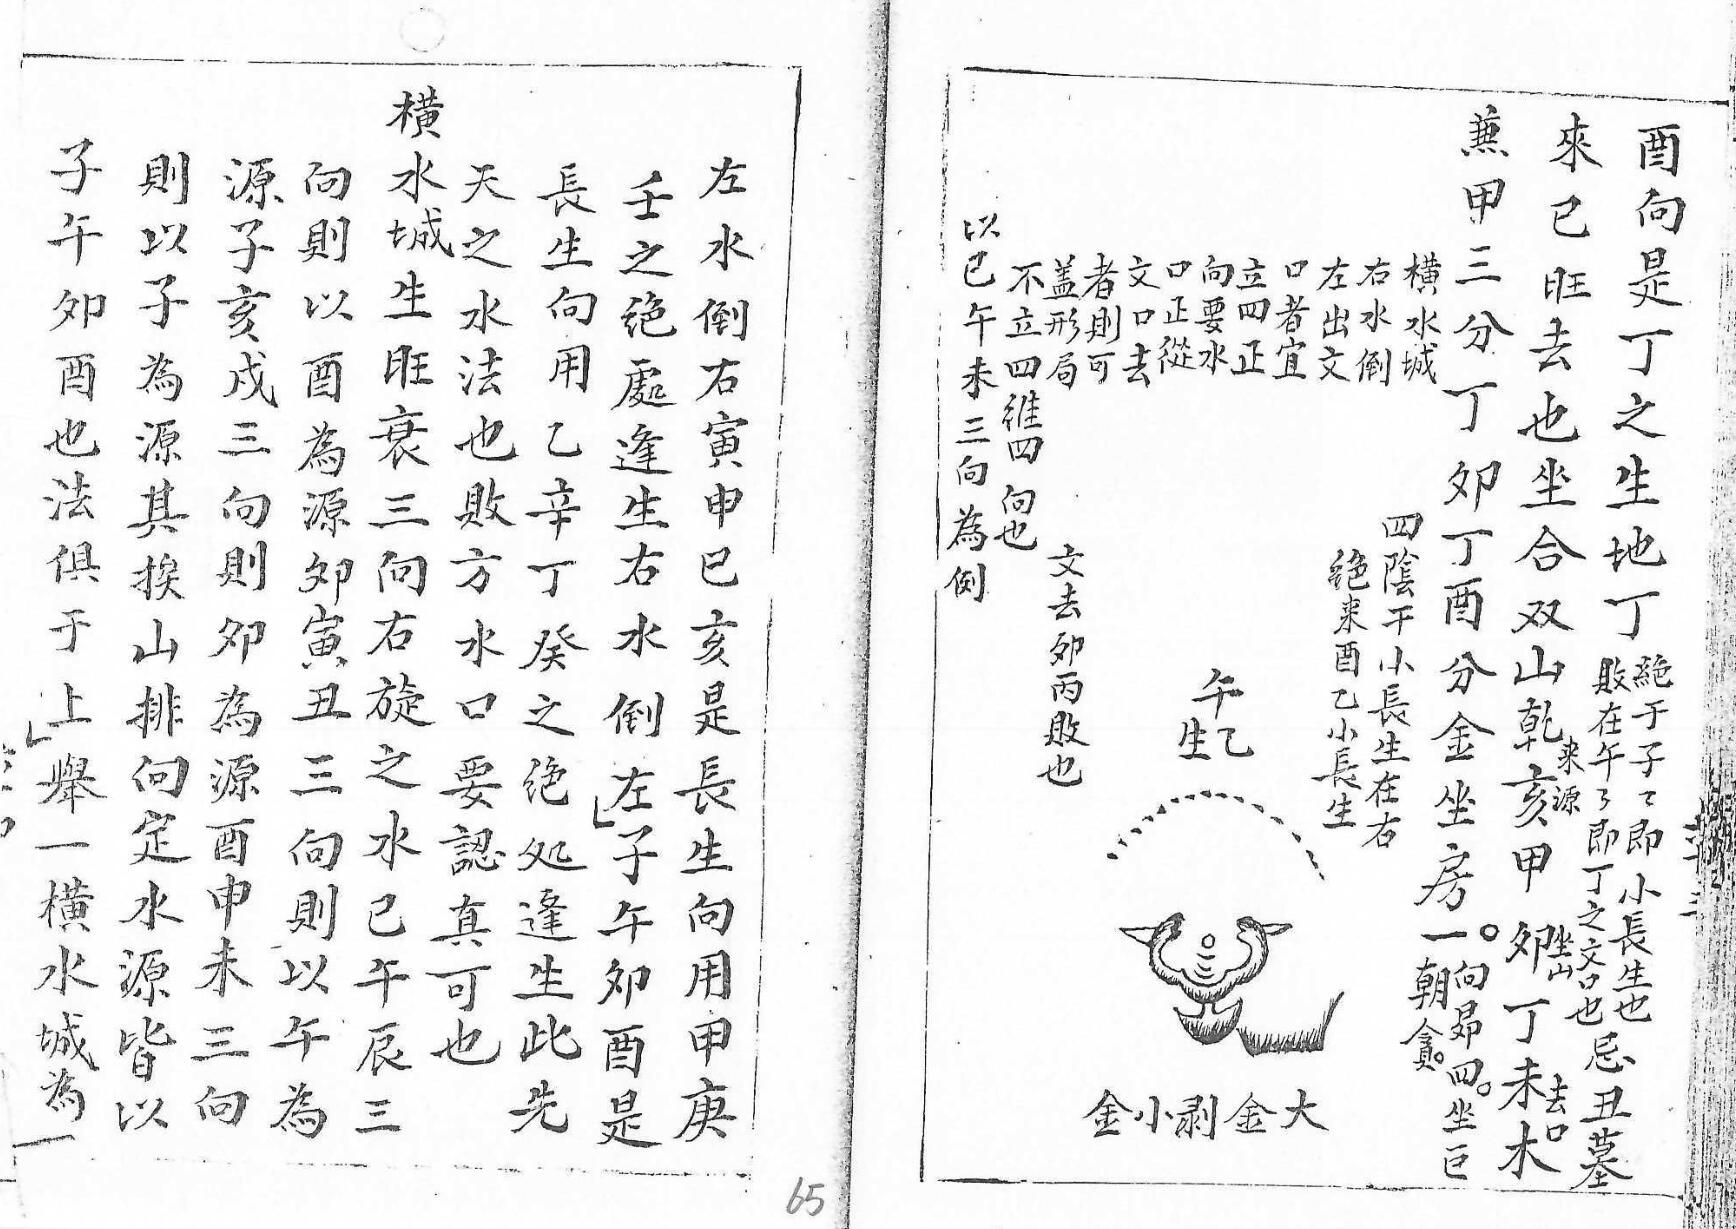 酉向是丁之生地丁
絕于子々即小長生也
敗在午了即丁之文口也
忌丑墓
來巳旺去也坐合双山乾亥甲卯丁未木
來源
坐山
去口
兼甲三分丁卯丁酉分金坐房
一向昴四坐巨
一朝貪
橫水城
右水倒
左出文
口者宜
立四正
向要水
口正從
文口去
者則可
盖形局
不立四維四向也
以巳午未三向為倒
四陰干小長生在右
絕来酉乙小長生
午乙生
文去卯丙敗也
大金剥小金
左水倒右寅申巳亥是長生向用甲庚
壬之絕處逢生右水倒左子午卯酉是
長生向用乙辛丁癸之絕処逢生此先
天之水法也敗方水口要認真可也
橫水城生旺衰三向右旋之水巳午辰三
向則以酉為源卯寅丑三向則以午為
源子亥戌三向則卯為源酉申未三向
則以子為源其挨山排向定水源皆以
子午卯酉也法俱于上舉一橫水城為
65